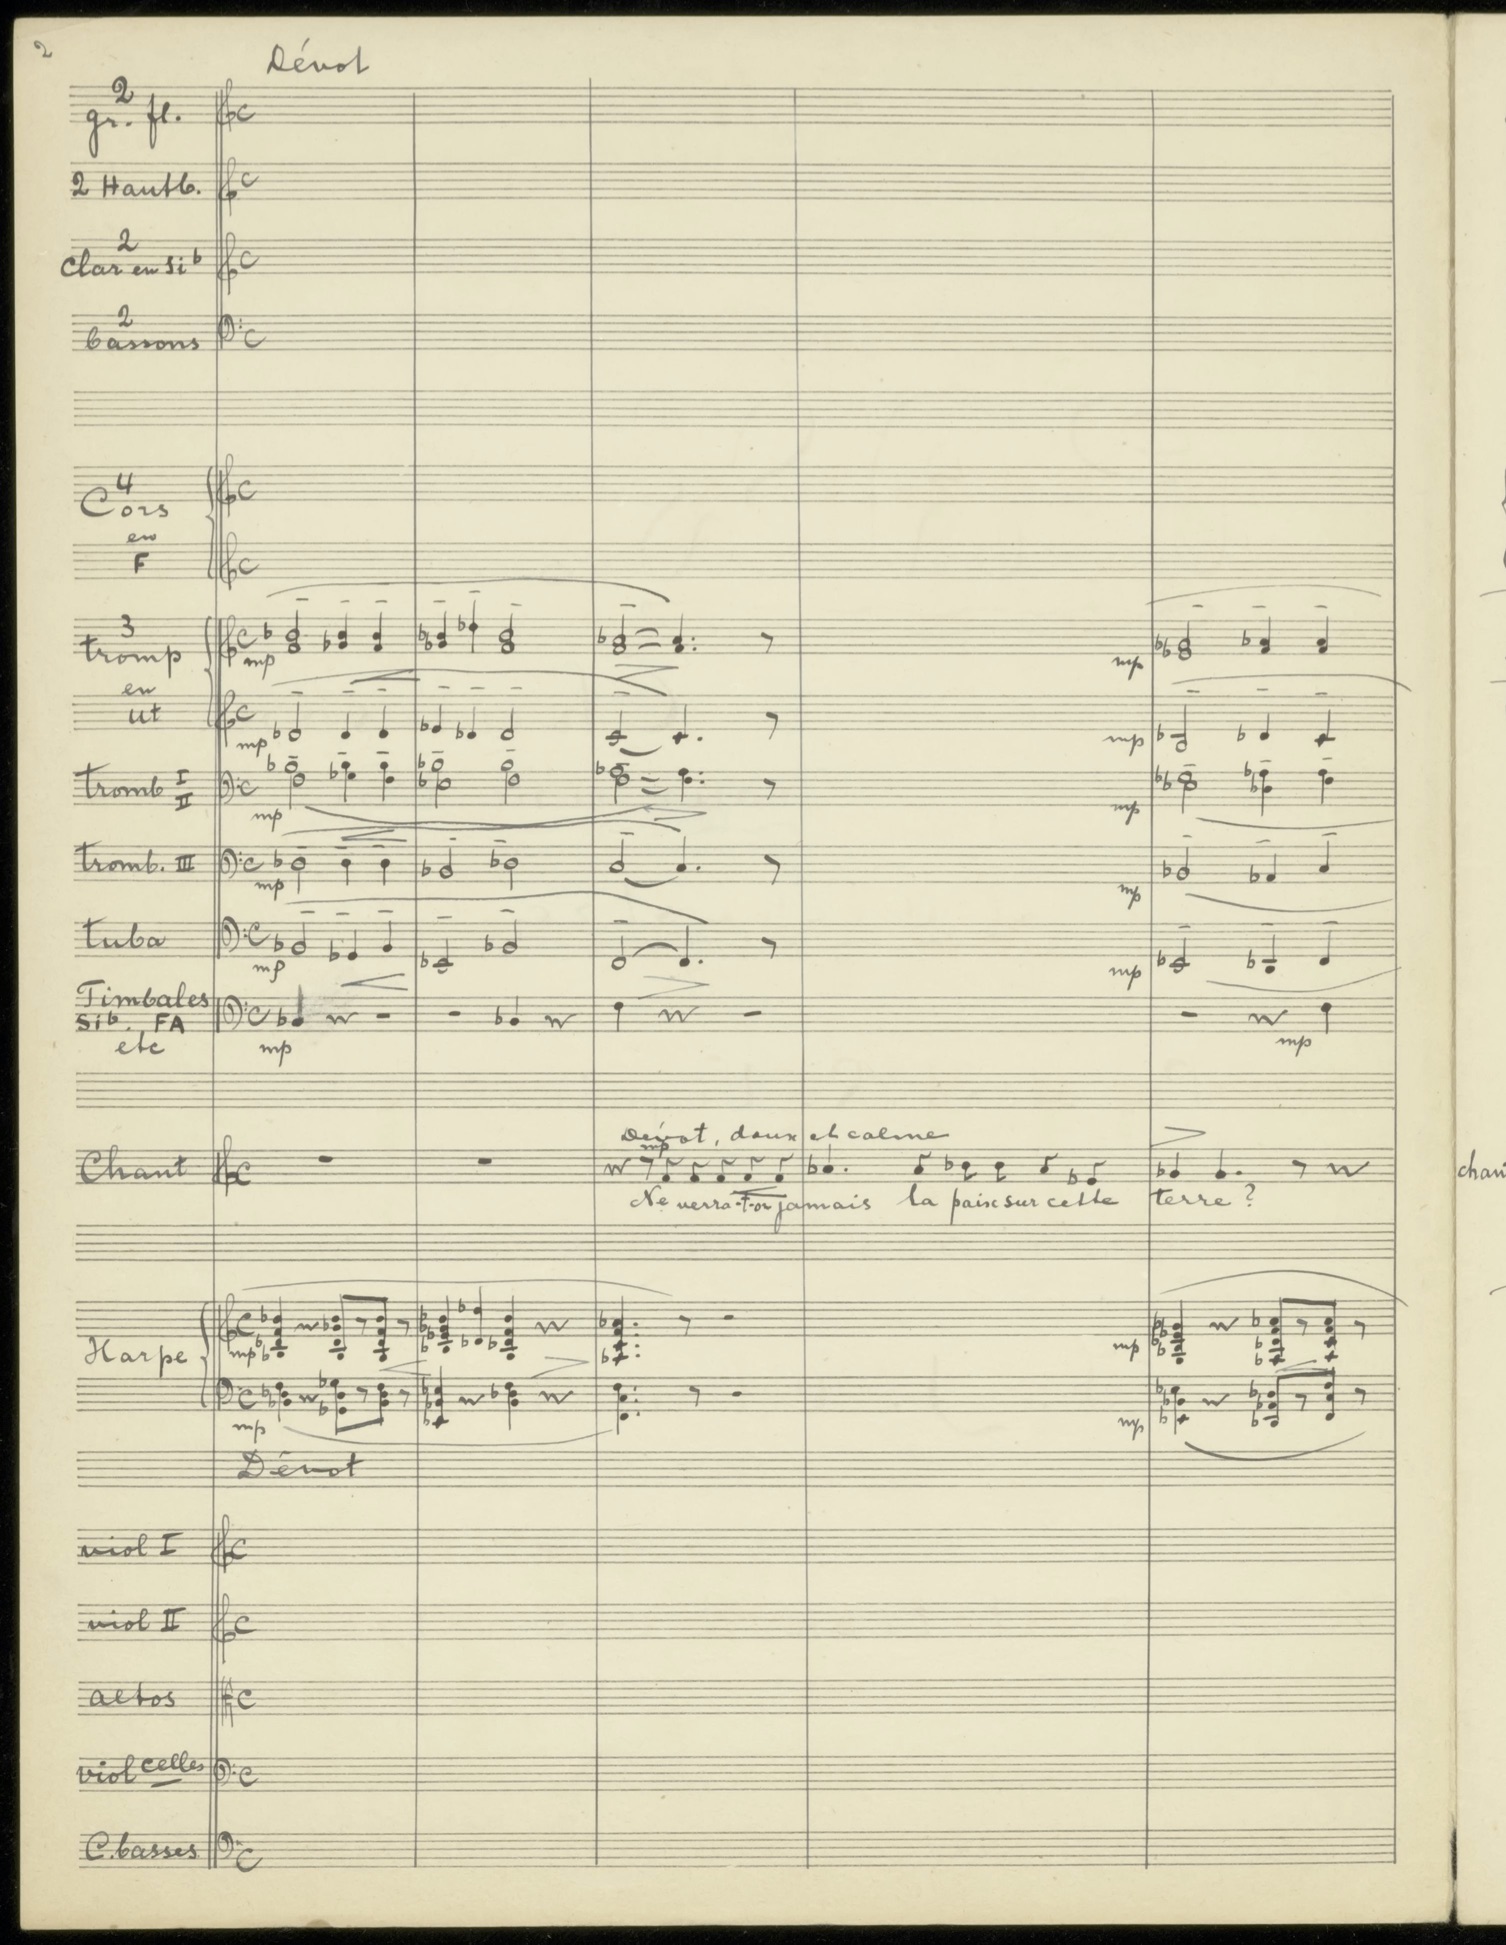 2
Dévot
2
gr. fl.
2 Hautb.
2
Clar en Si b
2
bassons
4
Cors
en
F
3
tromp
en
ut
mp
mp
mp
mp
tromb I
II
mp
mp
tromb. III
mp
mp
tuba
mp
mp
Timbales
Si b. FA
etc
mp
mp
Dévot, doux et calme
mp
Chant
Ne verra-t-on jamais la paix sur cette terre ?
chant
Harpe
mp
mp
mp
mp
Dévot
viol I
viol II
altos
violcelles
C.basses